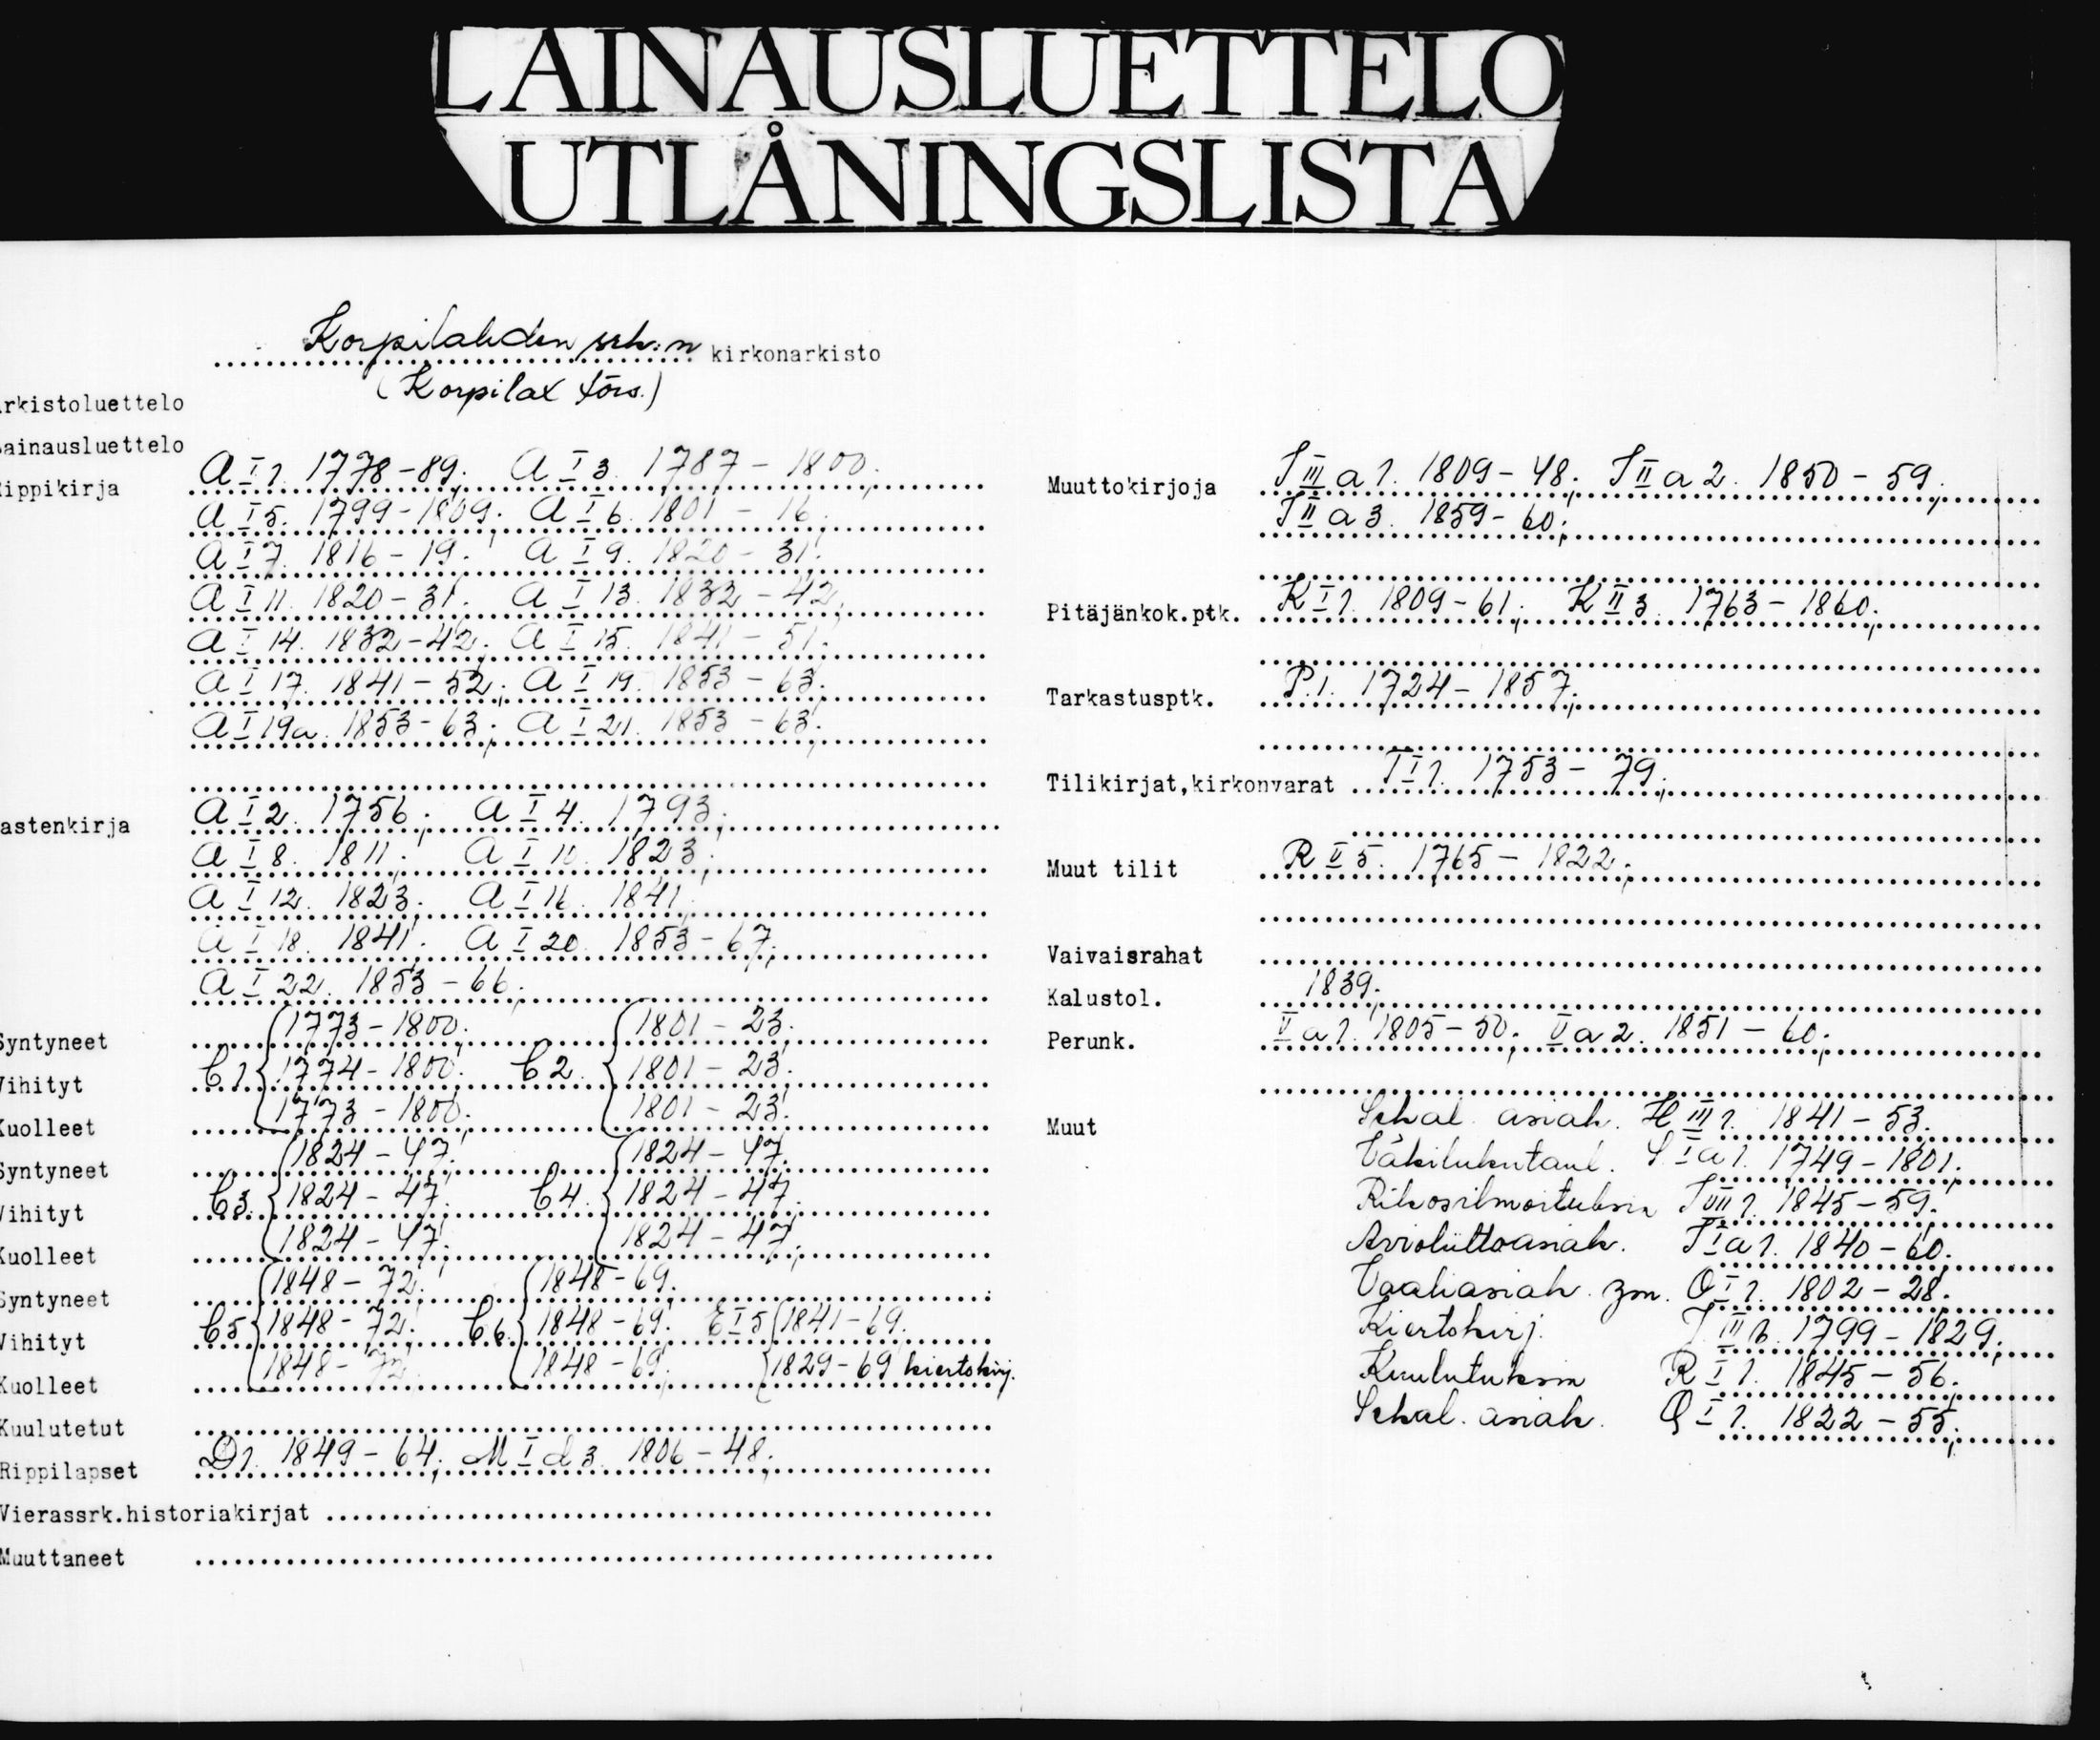 LAINAUSLUETTELO
UTLÅNINGSLISTA
Korpilahden srk:n kirkonarkisto
(Korpilax förs.)
rkistoluettelo
ainausluettelo
ippikirja A I 1. 1778-89; A I 3. 1787-1800;
A I 5. 1799-1809; A I 6. 1801-16;
A I 7. 1816-19; A I 9. 1820-31;
A I 11. 1820-31; A I 13. 1832-42;
A I 14. 1832-42; A I 15. 1841-51;
A I 17. 1841-52; A I 19. 1853-63;
A I 19a. 1853-63; A I 21. 1853-63;
astenkirja A I 2. 1756; A I 4. 1793;
A I 8. 1811; A I 10. 1823;
A I 12. 1823; A I 16. 1841;
A I 18. 1841; A I 20. 1853-67;
A I 22. 1853-66;
Syntyneet 1773-1800; 1801-23;
Vihityt C 1. 1774-1800; C 2. 1801-23;
Kuolleet 1773-1800; 1801-23;
Syntyneet 1824-47; 1824-47;
Vihityt C 3. 1824-47; C 4. 1824-47;
Kuolleet 1824-47; 1824-47;
Syntyneet 1848-72; 1848-69;
Vihityt C 5 1848-72; C 6. 1848-69; E I 5 1841-69.
Kuolleet 1848-72; 1848-69; 1829-69 kiertokirj.
Kuulutetut
Rippilapset D 1. 1849-64; M I d 3. 1806-48;
Vierassrk.historiakirjat
Muuttaneet
Muuttokirjoja I III a 1. 1809-48; I II a 2. 1850-59;
I II a 3. 1859-60;
Pitäjänkok.ptk. K I 1. 1809-61; K II 3. 1763-1860;
Tarkastusptk. P. 1. 1724-1857;
Tilikirjat,kirkonvarat T I 1. 1753-79;
Muut tilit R II 5. 1765-1822;
Vaivaisrahat
Kalustol. 1839;
Perunk. V a 1. 1805-50; V a 2. 1851-60;
Muut Sekal. asiak. H III 1. 1841-53.
Väkilukutaul. I a 1. 1749-1801;
Rikosilmoituksia I VIII 1. 1845-59;
Avioliittoasiak. I I a 1. 1840-60;
Vaaliasiak. O I 1. 1802-28;
Kiertokirj. III b. 1799-1829;
Kuulutuksia R I 1. 1845-56;
Sekal. asiak. Q I 1. 1822-55;